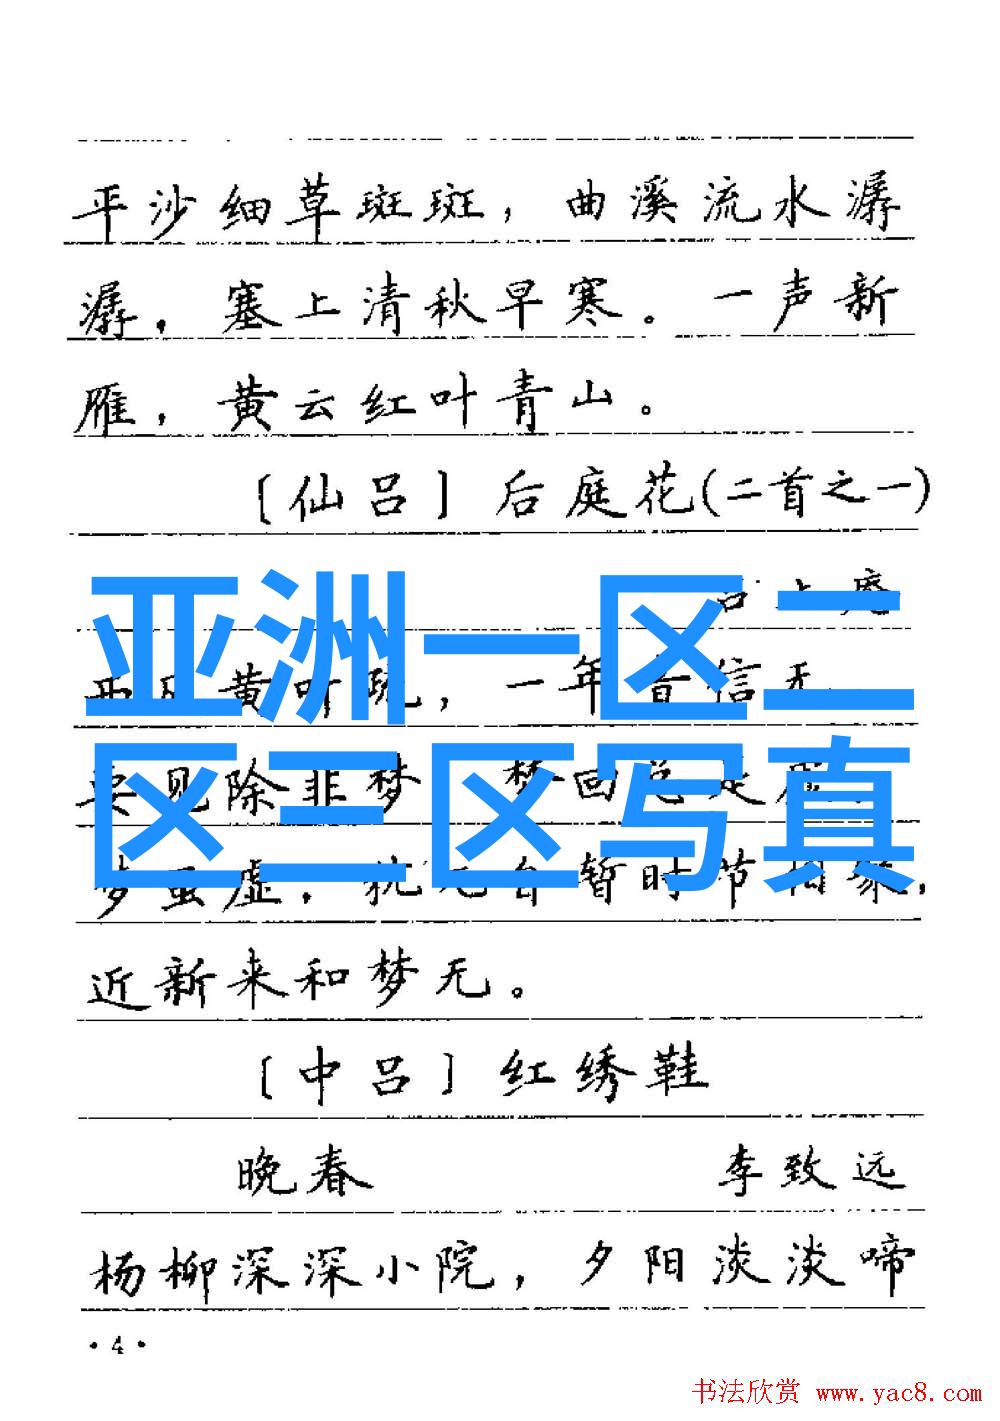 平沙细草斑斑，曲溪流水潺
潺，塞上清秋早寒。一声新
雁，黄云红叶青山。
〔仙吕〕后庭花(二首之一)
亚洲一区二
庵
黄叶疏，一年音信无
区三区写真
要见除非梦 梦回总是虚
梦虽虚，犹兀自暂时节相聚，
近新来和梦无。
〔中吕〕红绣鞋
晚春 李致远
杨柳深深小院，夕阳淡淡啼
·4·
书法欣赏 www.yac8.com